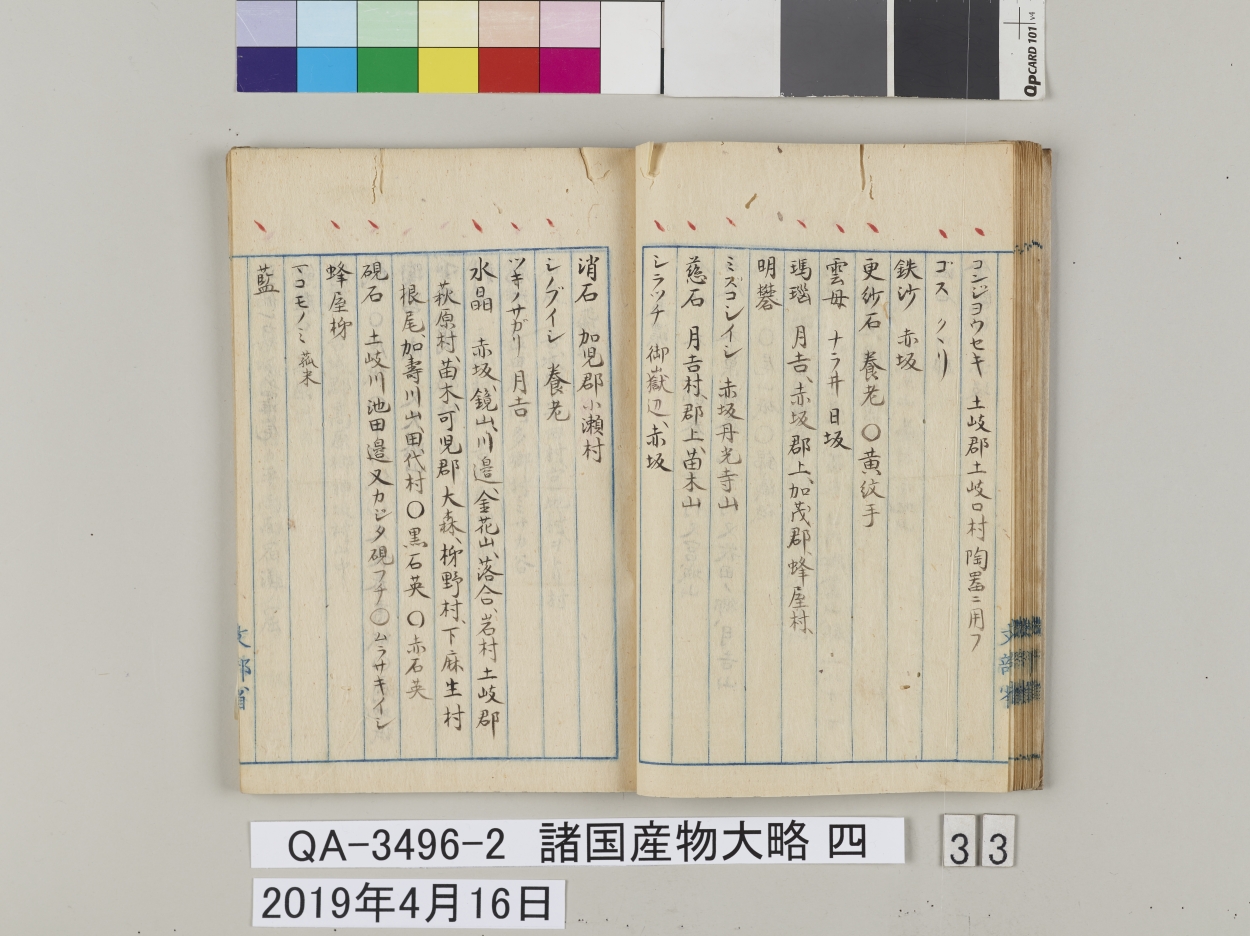 コンジヨウセキ 土岐郡土岐口村 陶器ニ用フ
ゴス クヽリ
鉄沙 赤坂
更紗石 養老 〇黄紋手
雲母 ナラ井 日坂
瑪瑙 月吉、赤坂郡上、加茂郡、蜂屋村、
明礬
ミズコンイシ 赤坂丹光寺山
慈石 月吉村、郡上、苗木山
シラツチ 御嶽辺、赤坂
消石 加児郡小瀬村
シノブイシ 養老
ツキノサガリ 月吉
水晶 赤坂、鏡山、川邉、金花山、落合、岩村土岐郡
萩原村、苗木、可児郡大森、柳野村、下麻生村
根尾、加壽川山、田代村〇黒石英〇赤石英
硯石〇土岐川池田邉又カジタ硯フチ〇ムラサキイシ
蜂屋柳
マコモノミ 菰米
藍
文部省
文部省
QA-3496-2 諸国産物大略 四
33
2019年4月16日
QpCARD 101 v4